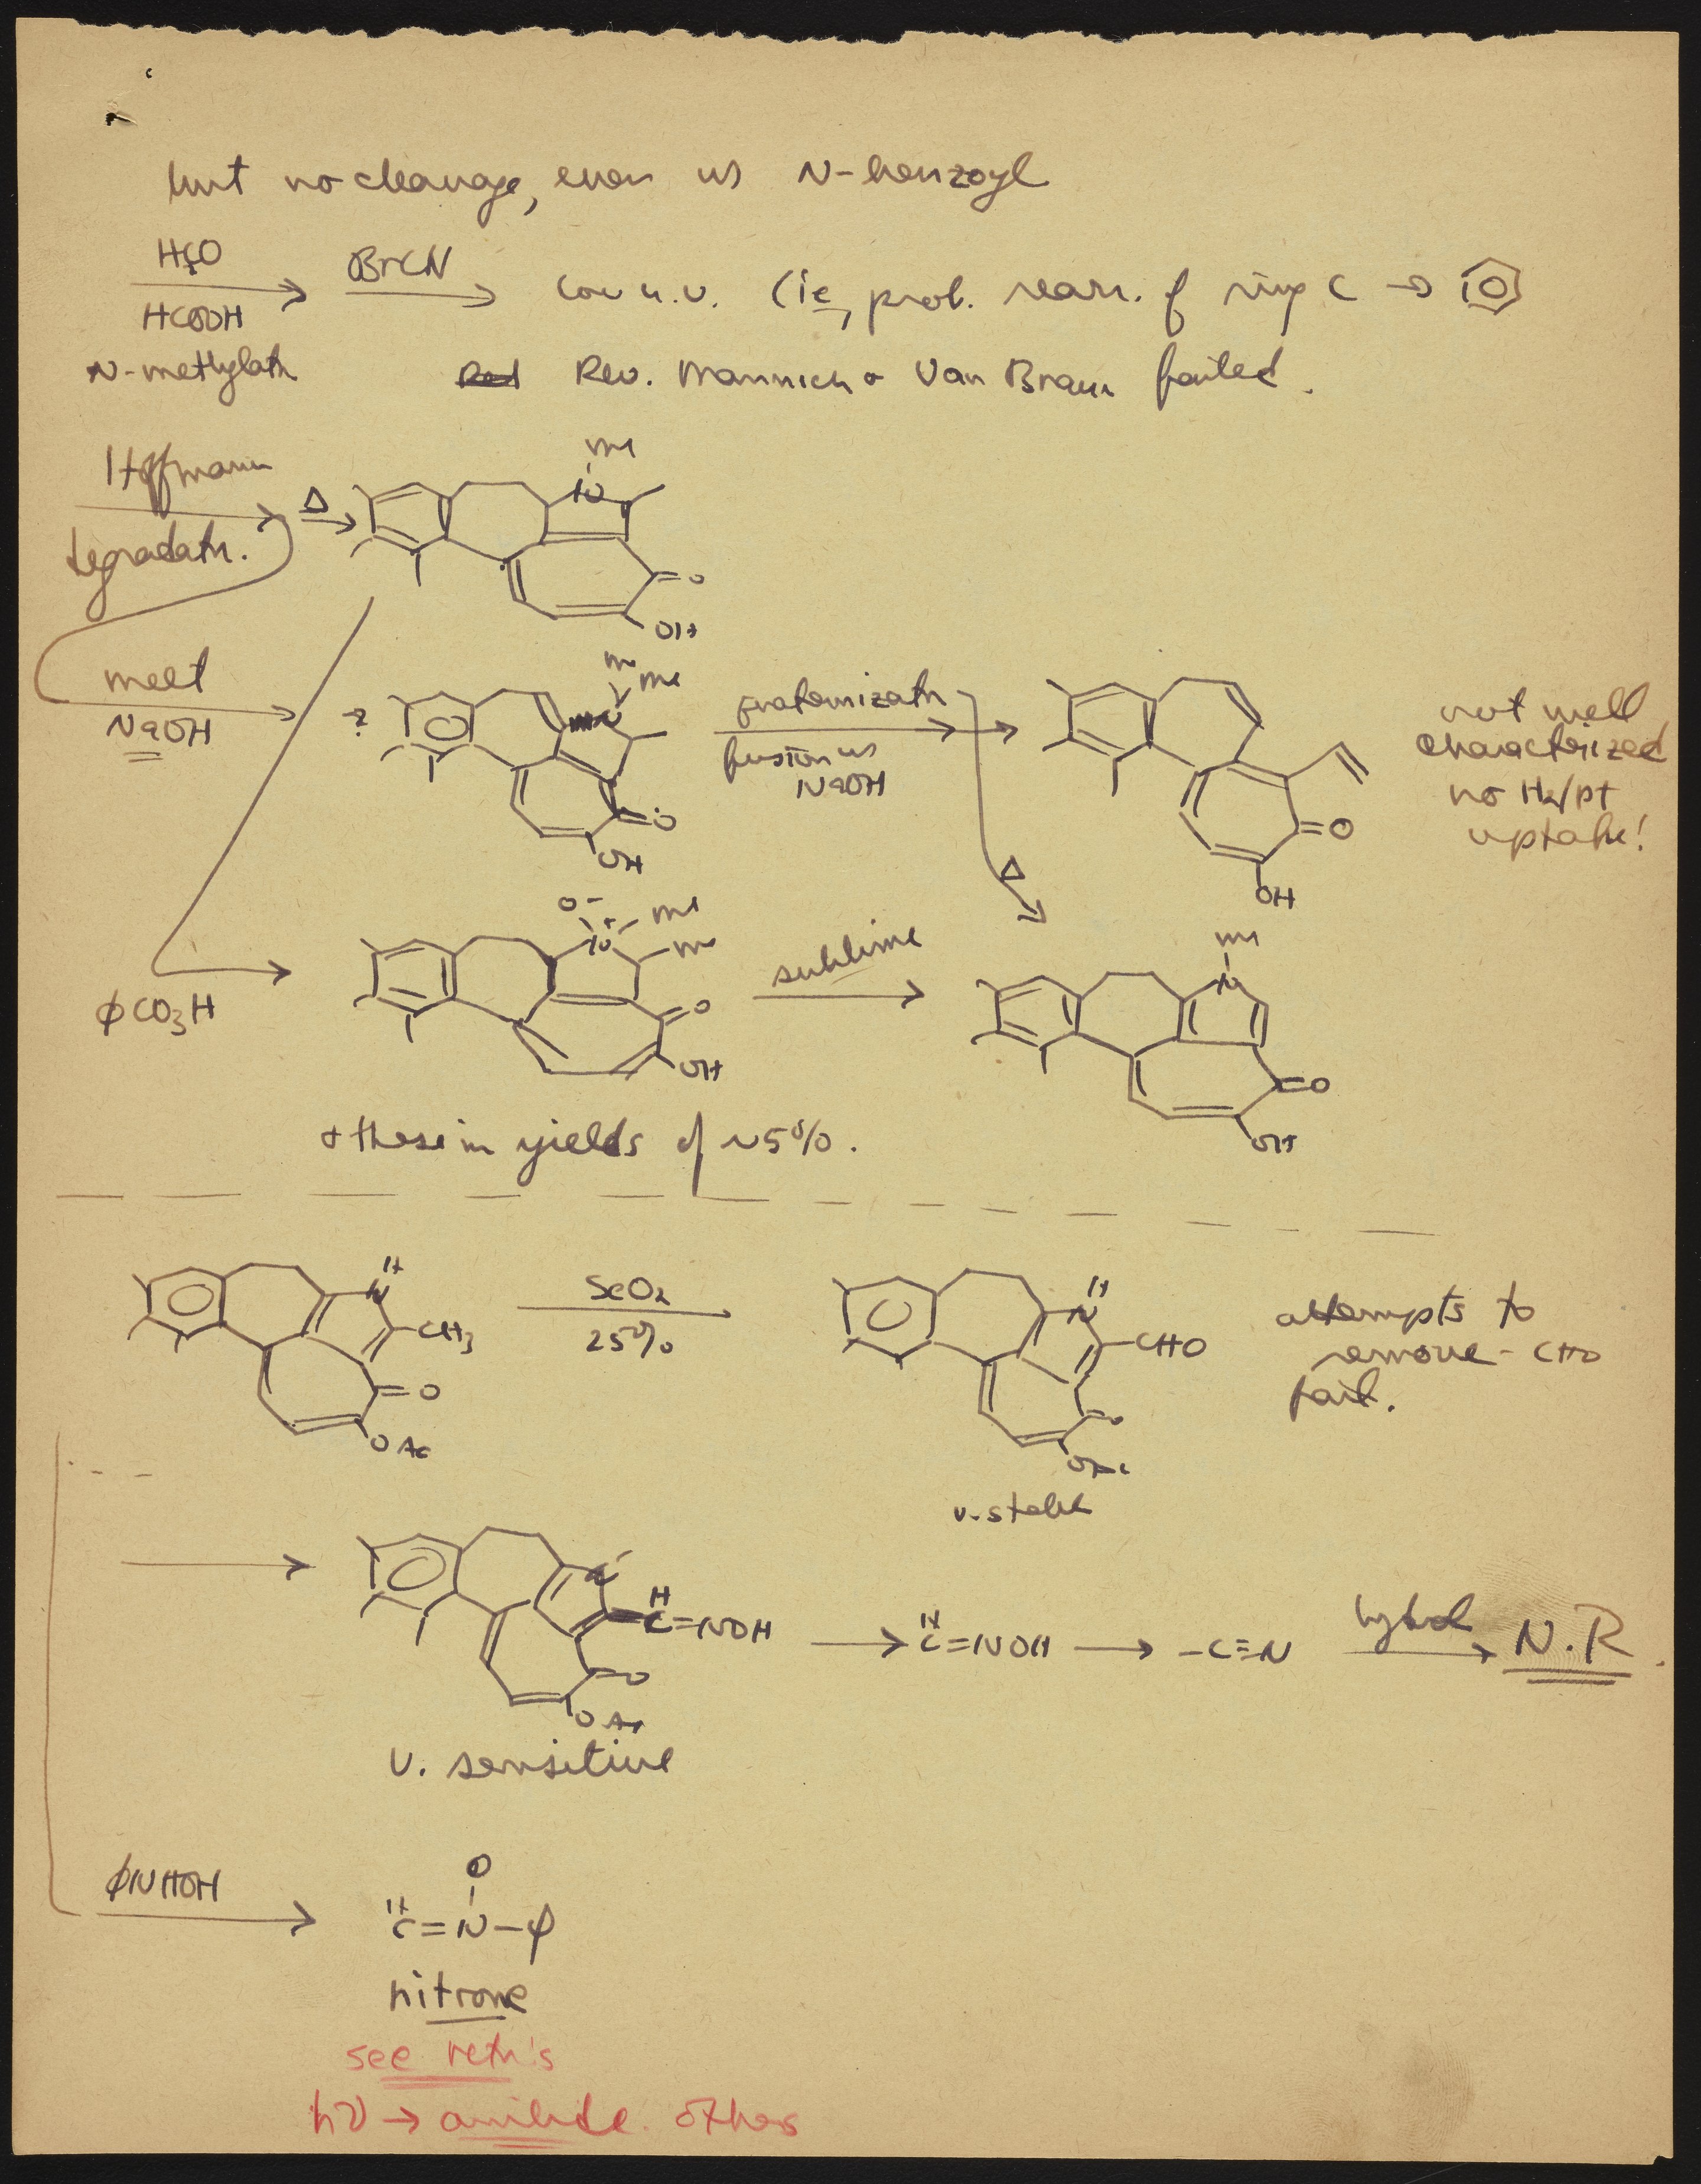 but no cleavage, even w N-benzoyl
H₂CO
HCOOH
N-methylatn
BrCN
low u.v. (ie, prob. rearr. of ring C →
Rev. Mannich & Van Braun failed.
Hoffmann
degradatn.
Δ
Me
N
O
OH
melt
NaOH
?
Me
Me
N
O
OH
quaternizatn
fusion w
NaOH
Δ
O
OH
not well
characterized
no H₂/Pt
uptake!
φCO₃H
O-
N+
Me
Me
O
OH
sublime
Me
N
O
OH
& these in yields of ~5%.
H
N
CH₃
O
OAc
SeO₂
25%
H
N
-CHO
O
OAc
v. stable
attempts to
remove -CHO
fail.
H
C=NOH
O
OAc
v. sensitive
H
C=NOH → -C≡N
hydrol
N.R.
φNHOH
O
H
C=N-φ
nitrone
see retn's
hν → amide. others